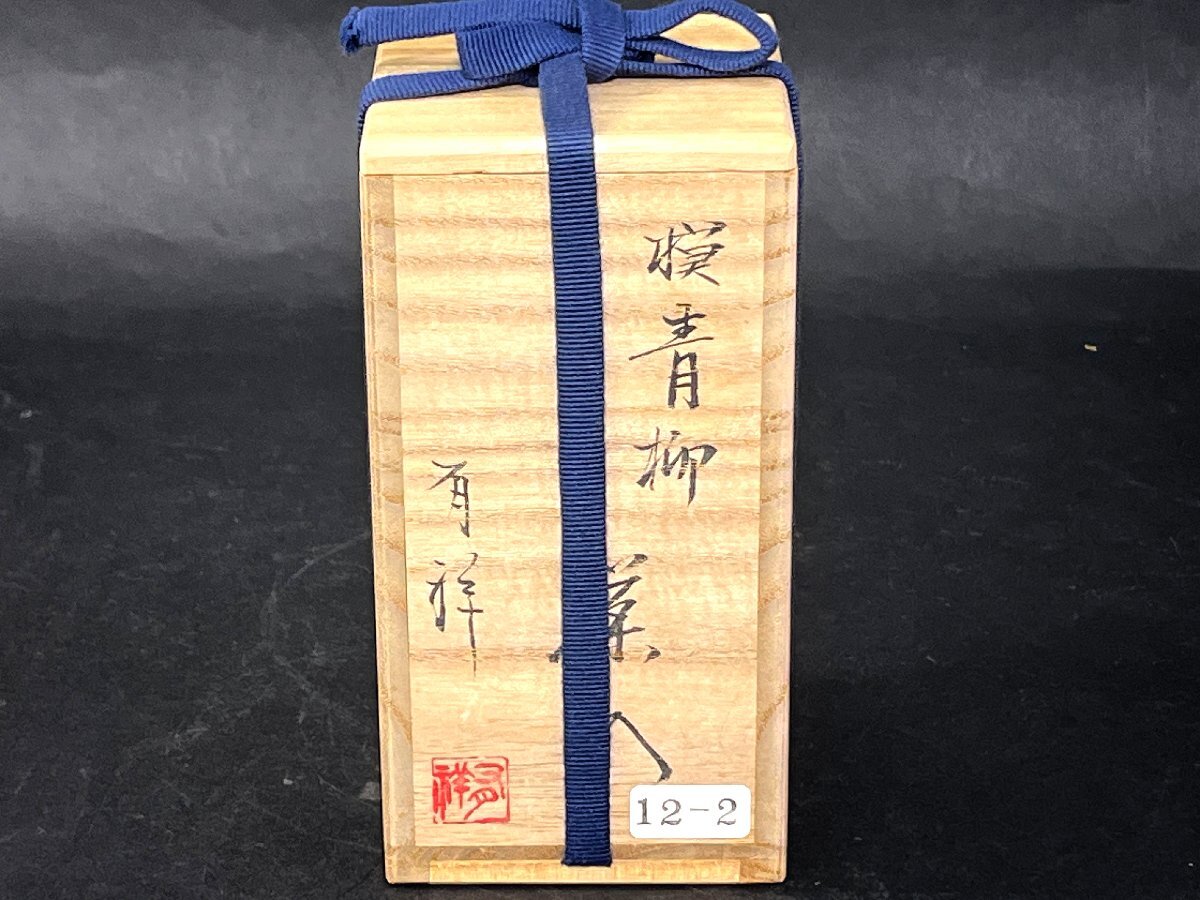 模青柳
茶入
有祥
有祥
12-2